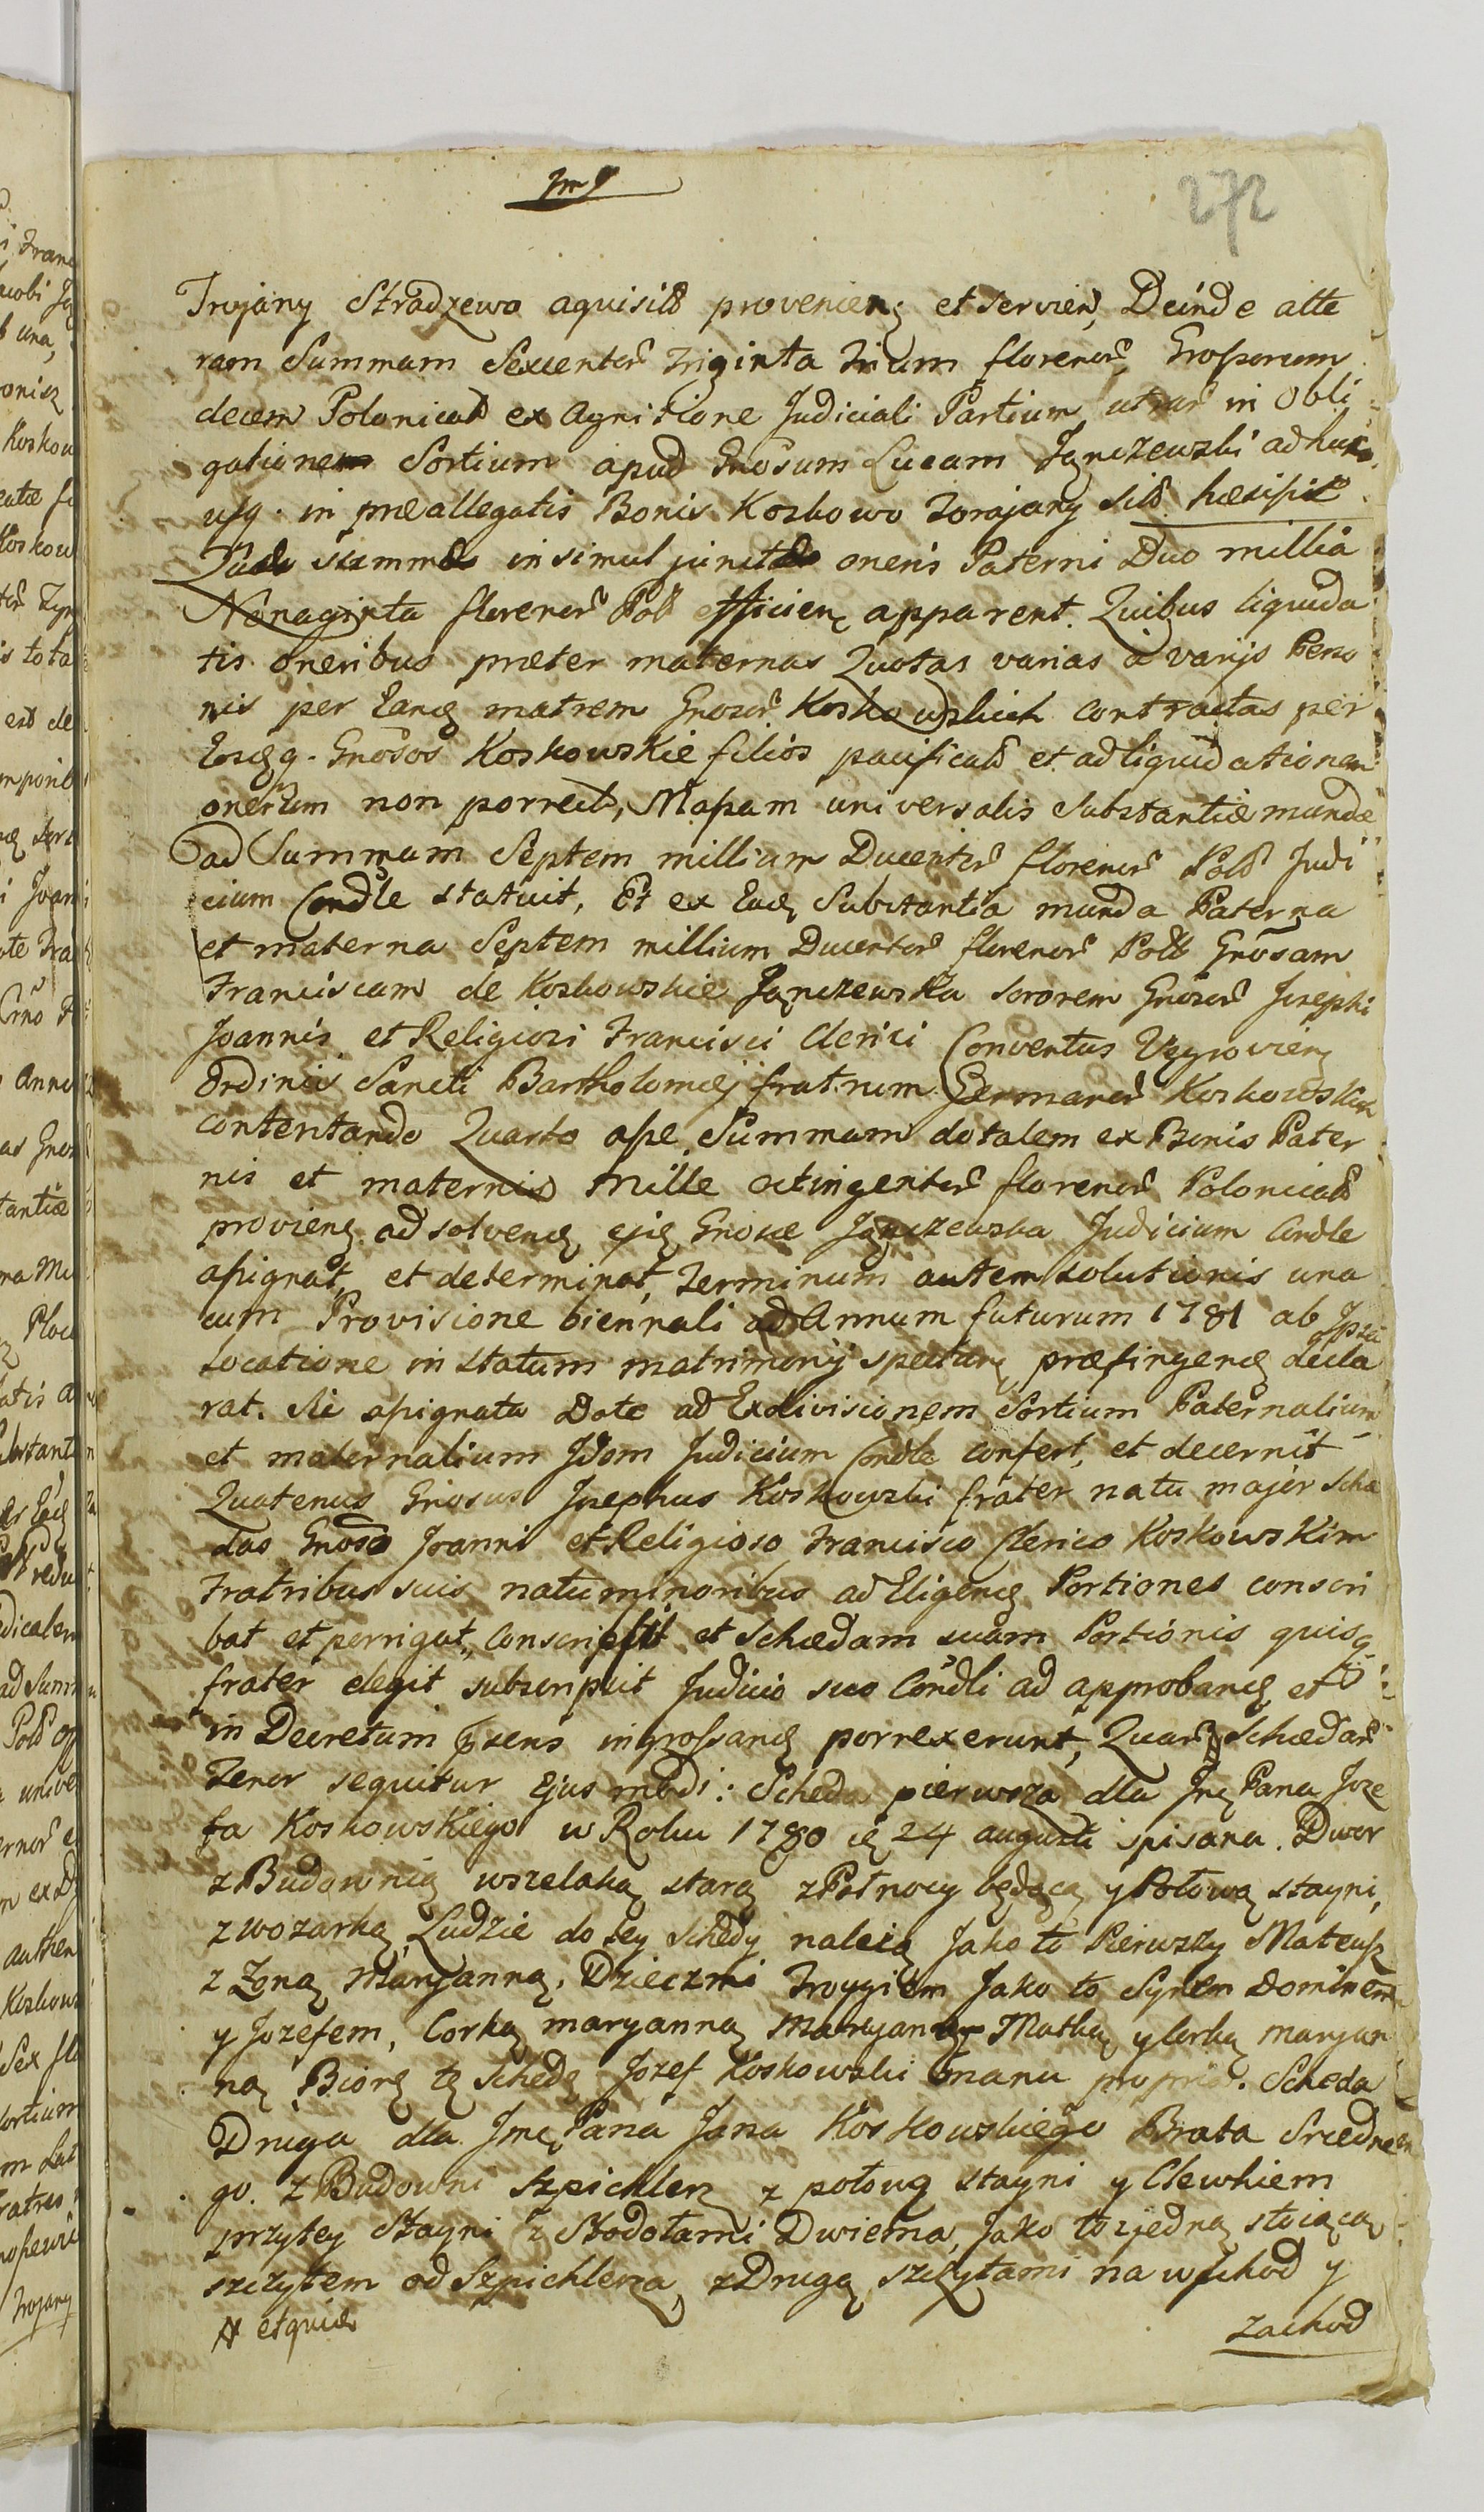 272
Trojany Stradzewo aquisitt provenien et servien, Deinde alte
ram Summam Sexcentor triginta trium florenor, Grossorum
decem Polonicat ex Agnitione Judiciali Partium utrar in Obli
gationem Sortium apud Gnosum Lucam Jęnczewski adhuc
usq. in præallegatis Bonis Koskowo Torojany sitt. hæsisse
Quæ summæ insimul junctæ oneris Paterni Duo millia
Nonaginta florenor Poll efficien apparent. Quibus liquida
tis oneribus præter maternas Quotas varias a varijs Perso
nis per Eand matrem Gnosor Koskowskich contractas per
Eosdq. Gnosos Koskowskie filios pacificatt et ad liquidationem
onerum non porrect, Massam universalis Substantiæ mundæ
ad Summam Septem millium Ducentor florenor Poll Judi
cium Condle statuit, Et ex Ead Substantia munda Paterna
et materna Septem millium Ducentor florenor Poll Gnosam
Franciscam de Koskowskie Jęnczewska sororem Gnosor Josephi
Joannis et Religiosi Francisci Clerici Conventus Vegrovien
Ordinis Sancti Bartholomej fratrum Germanor Koskowskich
contentando Quarto asse Summam dotalem ex Bonis Pater
nis et maternis Mille octingentor florenor Polonicatt
provien ad solvend ejd Gnosæ Jęnczewska Judicium Condle
assignat, et determinat, Terminum autem solutionis una
cum Provisione biennali ad Annum futurum 1781 ab Ipsa
locatione in statum matrimonij spectan præfingend decla
rat. Sic assignata Dote ad Exdivisionem Sortium Paternalium
et maternalium Idem Judicium Condle confert, et decernit
Quatenus Gnosus Josephus Koskowski frater natu major Sche
das Gnoso Joanni et Religioso Francisco Clerico Koskowskim
Fratribus suis natu minoribus ad Eligend Portiones conscri
bat et porrigat, conscripsit et Schedam suam Portionis quisq
frater elegit subscripsit Judicio suo Condli ad approband et
in Decretum præsens ingrossand porrexerunt, Quar Schedar
Tenor sequitur Ejusmodi: Scheda pierwsza dla Jmę Pana Joze
fa Koskowskiego w Roku 1780 ię 24 augusti spisana. Dwor
z Budownią wszelaką starą z Połnocy będącą y Połową stayni,
z wozarką, Ludzie do tey Schedy należą Jako to Pierwszy Mateusz
z Zoną Maryanną, Dziećmi Troygiem Jako to Synem Dominem
y Jozefem, Corką maryanną Maryanny Matką y Corką maryan
ną Biorę tę Schedę Jozef Koskowski manu propria. Scheda
Druga dla Jmę Pana Jana Koskowskiego Brata Srzednie
go. z Budowni Szpichlerz z połową stayni y Clewkiem
przy tey Stayni z Stodołami Dwiema, Jako to z jedną stoiącą
szczytem od Szpichlerza, z Drugą szczytami na wschod y
# etquid
zachod